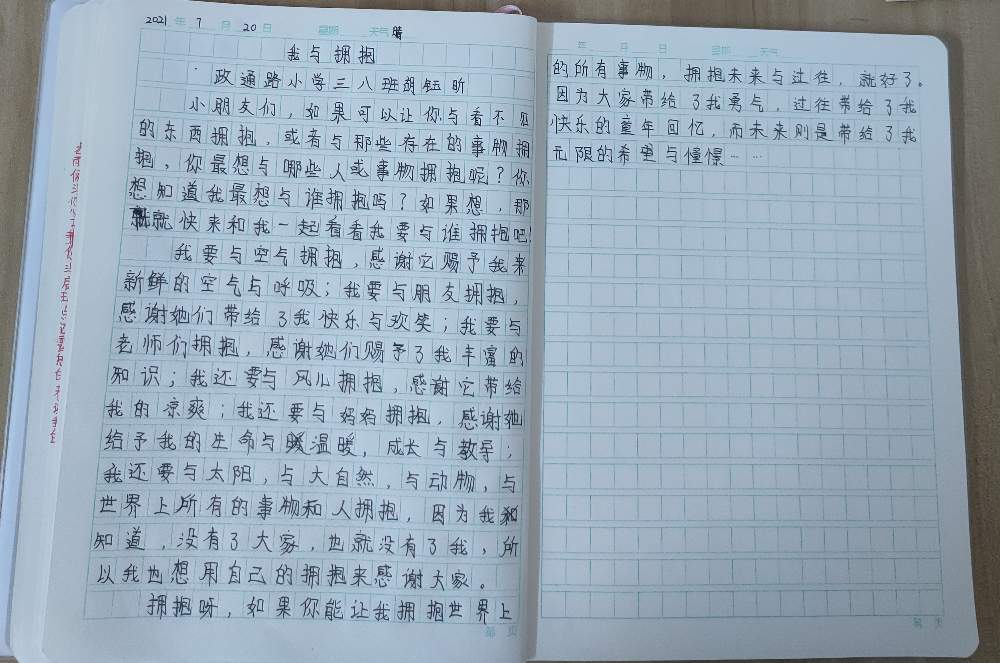 2021年7月20日 星期 天气晴
我与拥抱
政通路小学三八班胡钰昕
小朋友们，如果可以让你与看不见
的东西拥抱，或者与那些存在的事物拥
抱，你最想与哪些人或事物拥抱呢？你
想知道我最想与谁拥抱吗？如果想，那
就快来和我一起看看我要与谁拥抱吧！
我要与空气拥抱，感谢它赐予我来
新鲜的空气与呼吸；我要与朋友拥抱，
感谢她们带给了我快乐与欢笑；我要与
老师们拥抱，感谢她们赐予了我丰富的
知识；我还要与风儿拥抱，感谢它带给
我的凉爽；我还要与妈妈拥抱，感谢她
给予我的生命与温暖，成长与教导；
我还要与太阳，与大自然，与动物，与
世界上所有的事物和人拥抱，因为我
知道，没有了大家，也就没有了我，所
以我也想用自己的拥抱来感谢大家。
拥抱呀，如果你能让我拥抱世界上
第 页
年 月 日 星期 天气
的所有事物，拥抱未来与过往，就好了。
因为大家带给了我勇气，过往带给了我
快乐的童年回忆，而未来则是带给了我
无限的希望与憧憬……
第 页